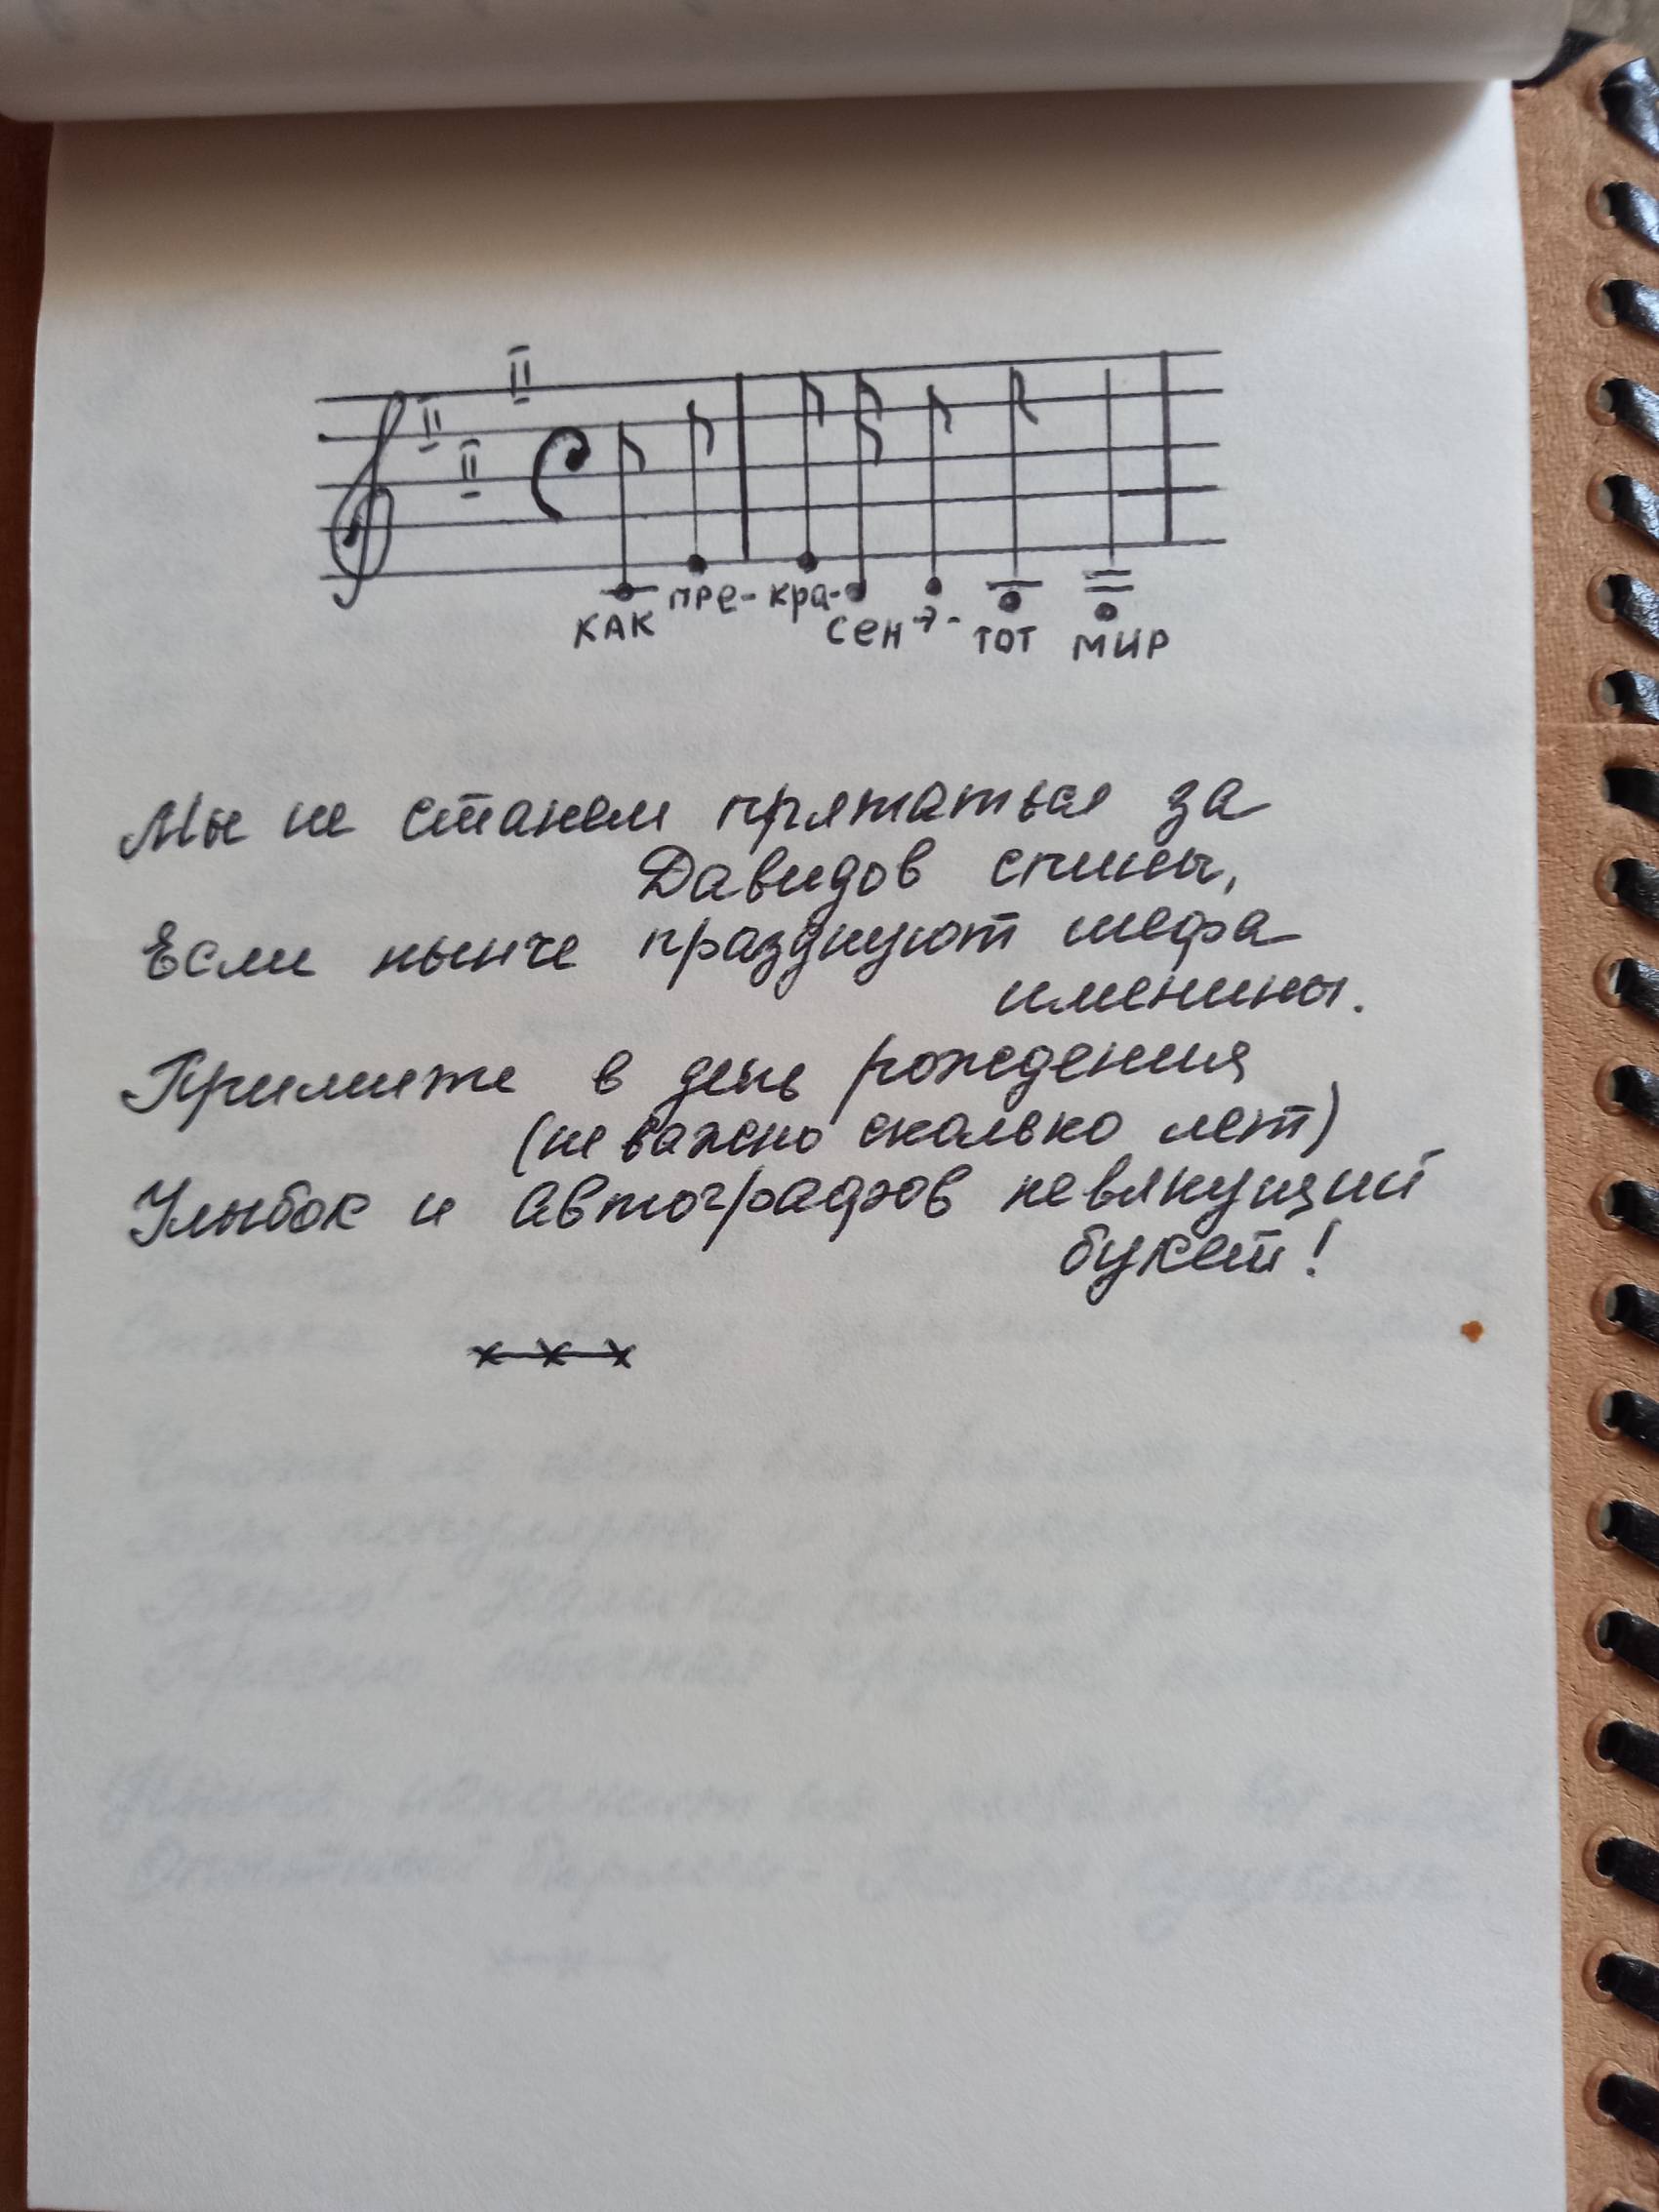 КАК ПРЕ- КРА- СЕН Э- ТОТ МИР
Мы не станем прятаться за
Давидов спины,
Если нынче празднуют шефа
именины.
Примите в день рождения
(не важно сколько лет)
Улыбок и автографов невянущий
букет!